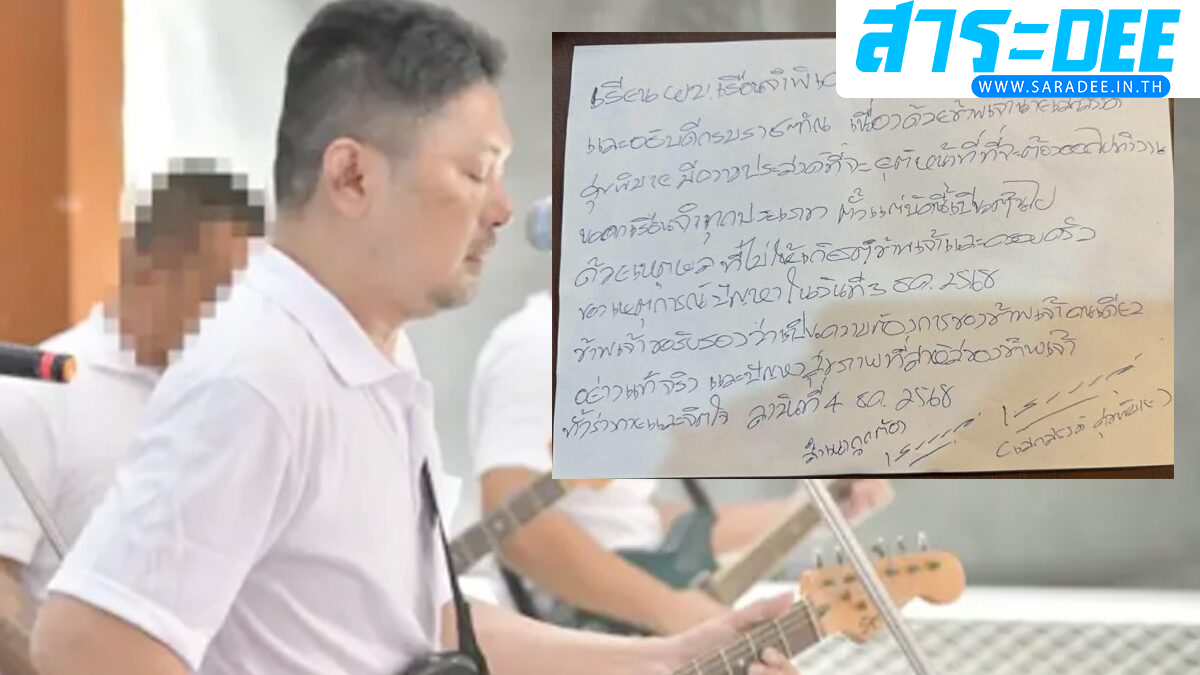 สาระDEE
WWW.SARADEE.IN.TH
เรียน ผบ.เรือนจำพิเ
และอธิบดีกรมราชทัณ เนื่องด้วยข้าพเจ้านายเสกสรรค์
ศุขพิมาย มีความประสงค์ที่จะ ยุติหน้าที่ที่จะต้องออกไปทำงาน
นอกเรือนจำทุกประเภท ตั้งแต่บัดนี้เป็นต้นไป
ด้วยเหตุผล ที่ไม่ให้เกิดแก่ข้าพเจ้าและครอบครัว
ของเหตุการณ์ปัญหา ในวันที่ 3 ธค. 2568
ข้าพเจ้าขอรับรองว่าเป็นความต้องการของข้าพเจ้าคนเดียว
อย่างแท้จริง และปัญหาสุขภาพที่ ของข้าพเจ้า
ทั้งร่างกายและจิตใจ ลงวันที่ 4 ธค. 2568
สำเนาถูกต้อง
(เสกสรรค์ ศุขพิมาย)